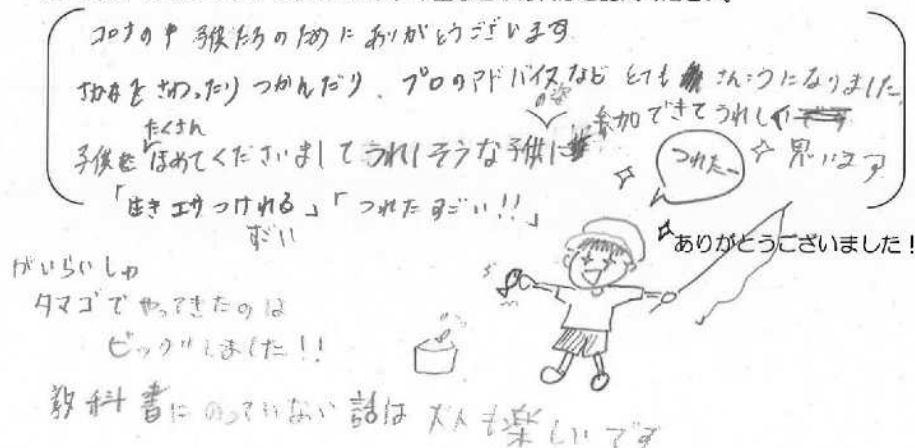 コロナの中 子供たちのために ありがとうございます
さかなをさわったり つかんだり、プロのアドバイスなど とても さんこうになりました。
たくさん
子供をほめてくださいまして うれしそうな子供の姿に 参加できてうれしく思います
「生きエサつけれる」「つれたすごい!!」
すごい
つれたー
ありがとうございました！
がいらいしゅ
タマゴで やってきたのは
ビックリしました!!
教科書にのっていない話は 大人も楽しいです